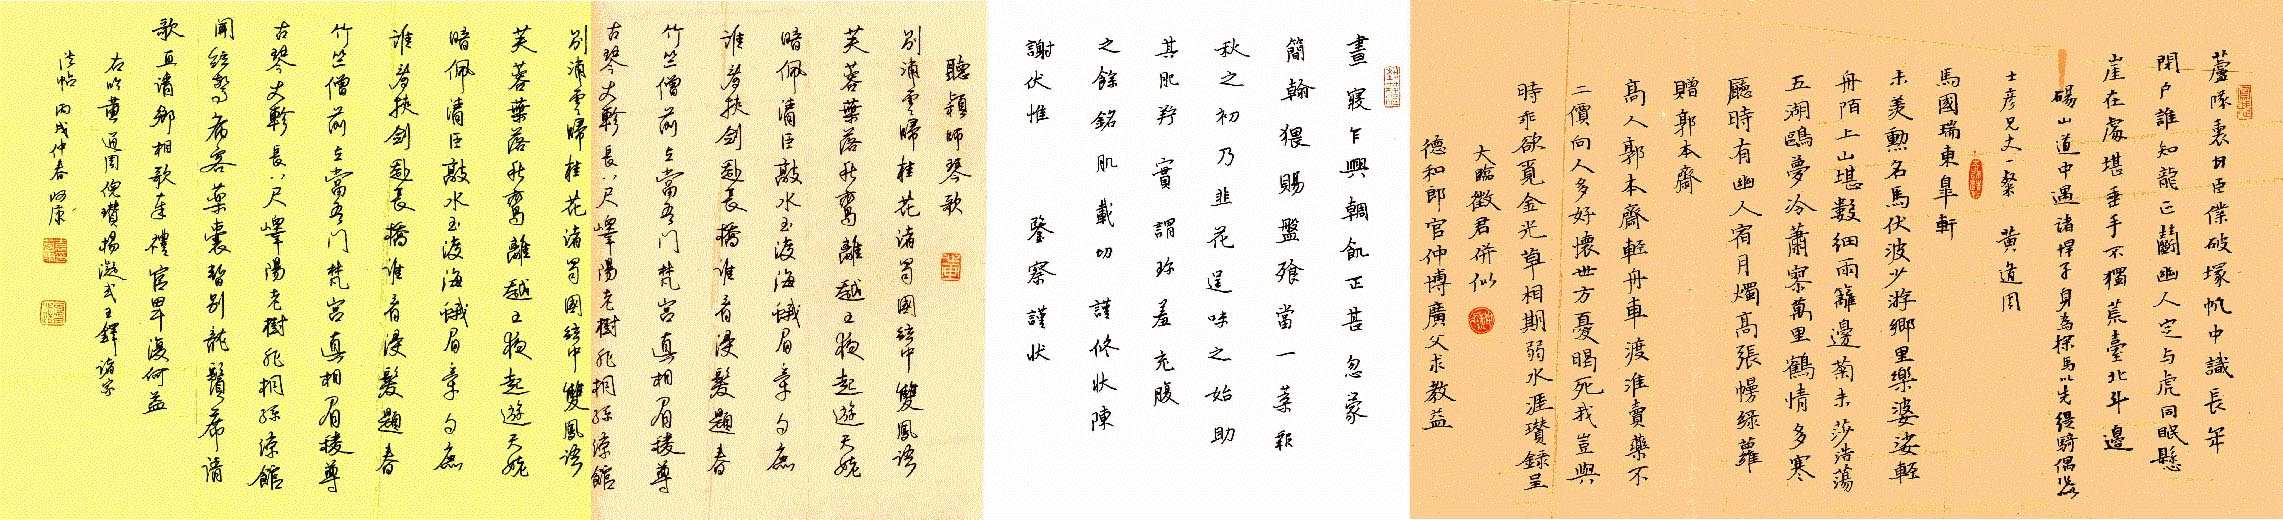 蘆隊裏甘臣僕破塚帆中識長年
閉戶誰知龍正鬭幽人定与虎同眠懸
崖在處堪垂手不獨荒臺北斗邊
碭山道中遇諸悍子身為探馬以先後騎偶
士彥兄丈一粲 黃道周
馬國瑞東皐軒
未羨勲名馬伏波少游鄉里樂婆娑輕
舟陌上山堪數細雨籬邊菊未莎浩蕩
五湖鷗夢冷蕭寥萬里鶴情多寒
廳時有幽人宿月燭高張幔綠蘿
贈郭本齋
高人郭本齋輕舟車渡淮賣藥不
二價向人多好懷世方憂暍死我豈與
時乖欲覓金光草相期弱水涯瓚錄呈
大臨徵君併似
德和郎官仲博廣父求教益
晝寢乍興輖飢正甚忽蒙
簡翰猥賜盤飧當一葉報
秋之初乃韭花逞味之始助
其肥羜實謂珍羞充腹
之餘銘肌載切謹修狀陳
謝伏惟 鑒察謹狀
聽穎師琴歌
别浦雲歸桂花渚蜀國絃中雙鳳語
芙蓉葉落秋鸞離越王夜起遊天姥
暗佩清臣敲水玉渡海蛾眉牽白鹿
誰看挾劍赴長橋誰看浸髮題春
竹竺僧前立當吾門梵宮真相眉稜尊
古琴大軫長八尺嶧陽老樹非桐孫涼館
别浦雲歸桂花渚蜀國絃中雙鳳語
芙蓉葉落秋鸞離越王夜起遊天姥
暗佩清臣敲水玉渡海蛾眉牽白鹿
誰看挾劍赴長橋誰看浸髮題春
竹竺僧前立當吾門梵宮真相眉稜尊
古琴大軫長八尺嶧陽老樹非桐孫涼館
聞絃驚病客藥囊暫别龍鬚席請
歌直請卿相歌奉禮官卑復何益
右臨黃道周倪瓚楊凝式王鐸諸家
法帖 丙戌仲春